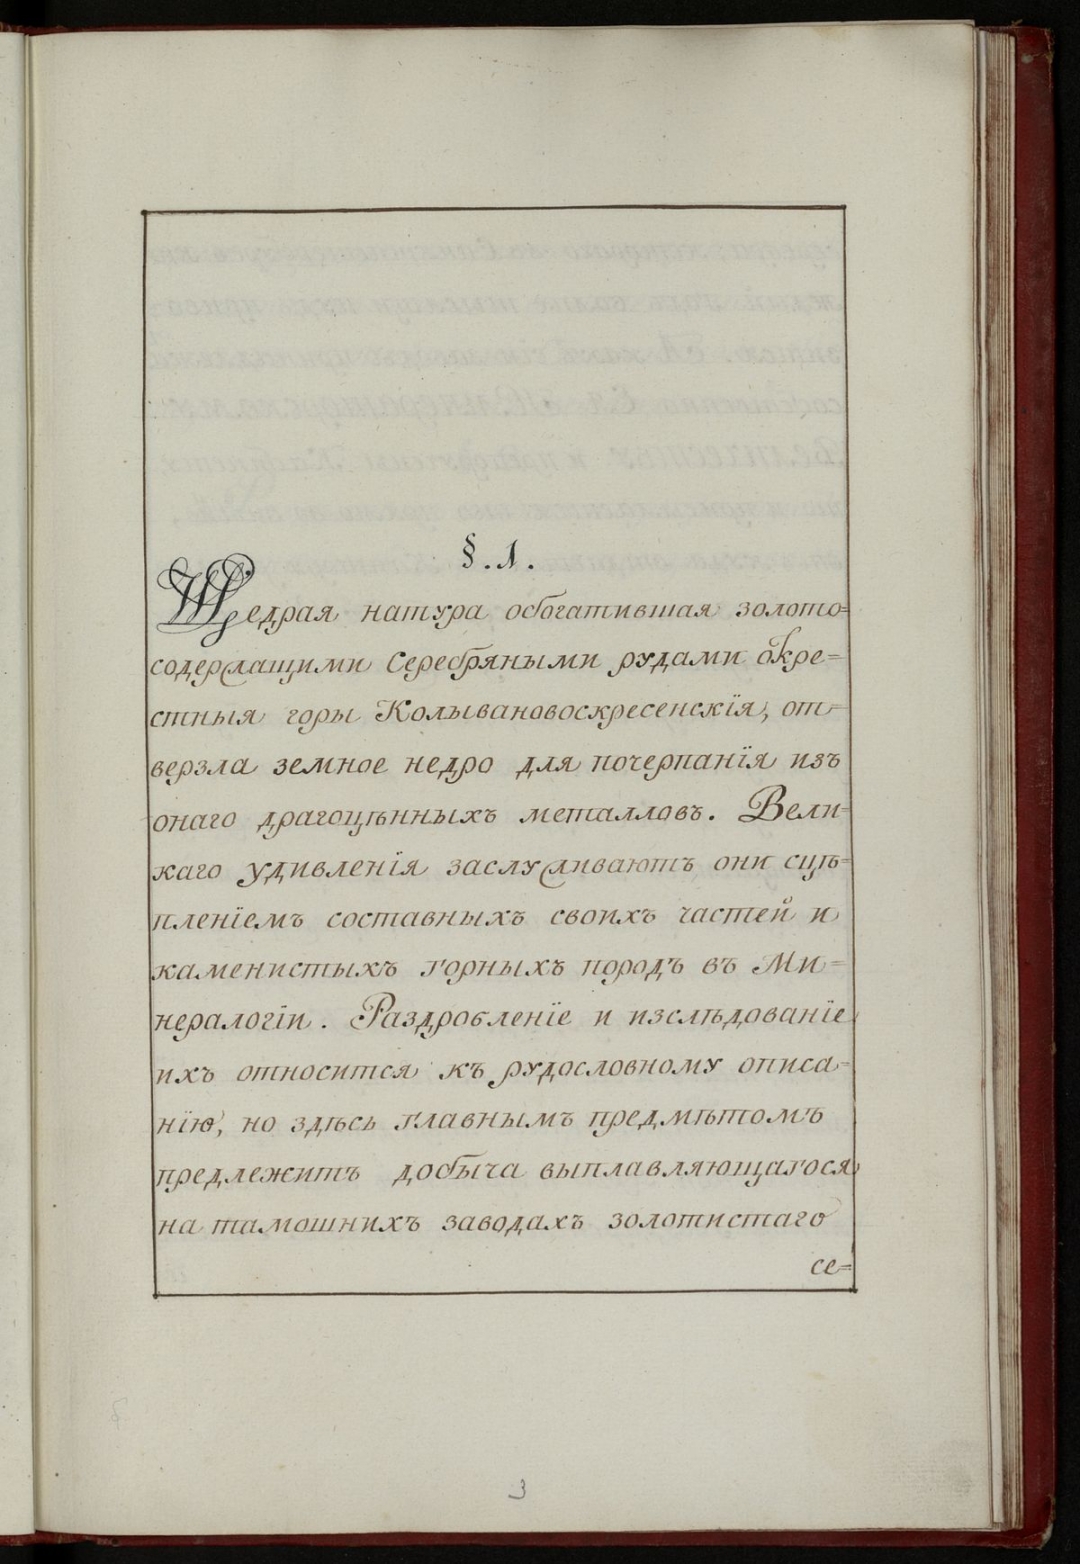 §. 1.
Щедрая натура обогатившая золото=
содержащими Серебряными рудами окре=
стныя горы Колывановоскресенскїя, от=
верзла земное недро для почерпанїя изъ
онаго драгоцѣнныхъ металловъ. Вели=
каго удивленїя заслуживаютъ они сцѣ=
пленїемъ составныхъ своихъ частей и
каменистыхъ горныхъ породъ въ Ми=
нералогїи. Раздробленїе и изслѣдованїе
ихъ относится къ рудословному описа=
нїю, но здѣсь главнымъ предмѣтомъ
предлежитъ добыча выплавляющагося
на тамошнихъ заводахъ золотистаго
се=
3